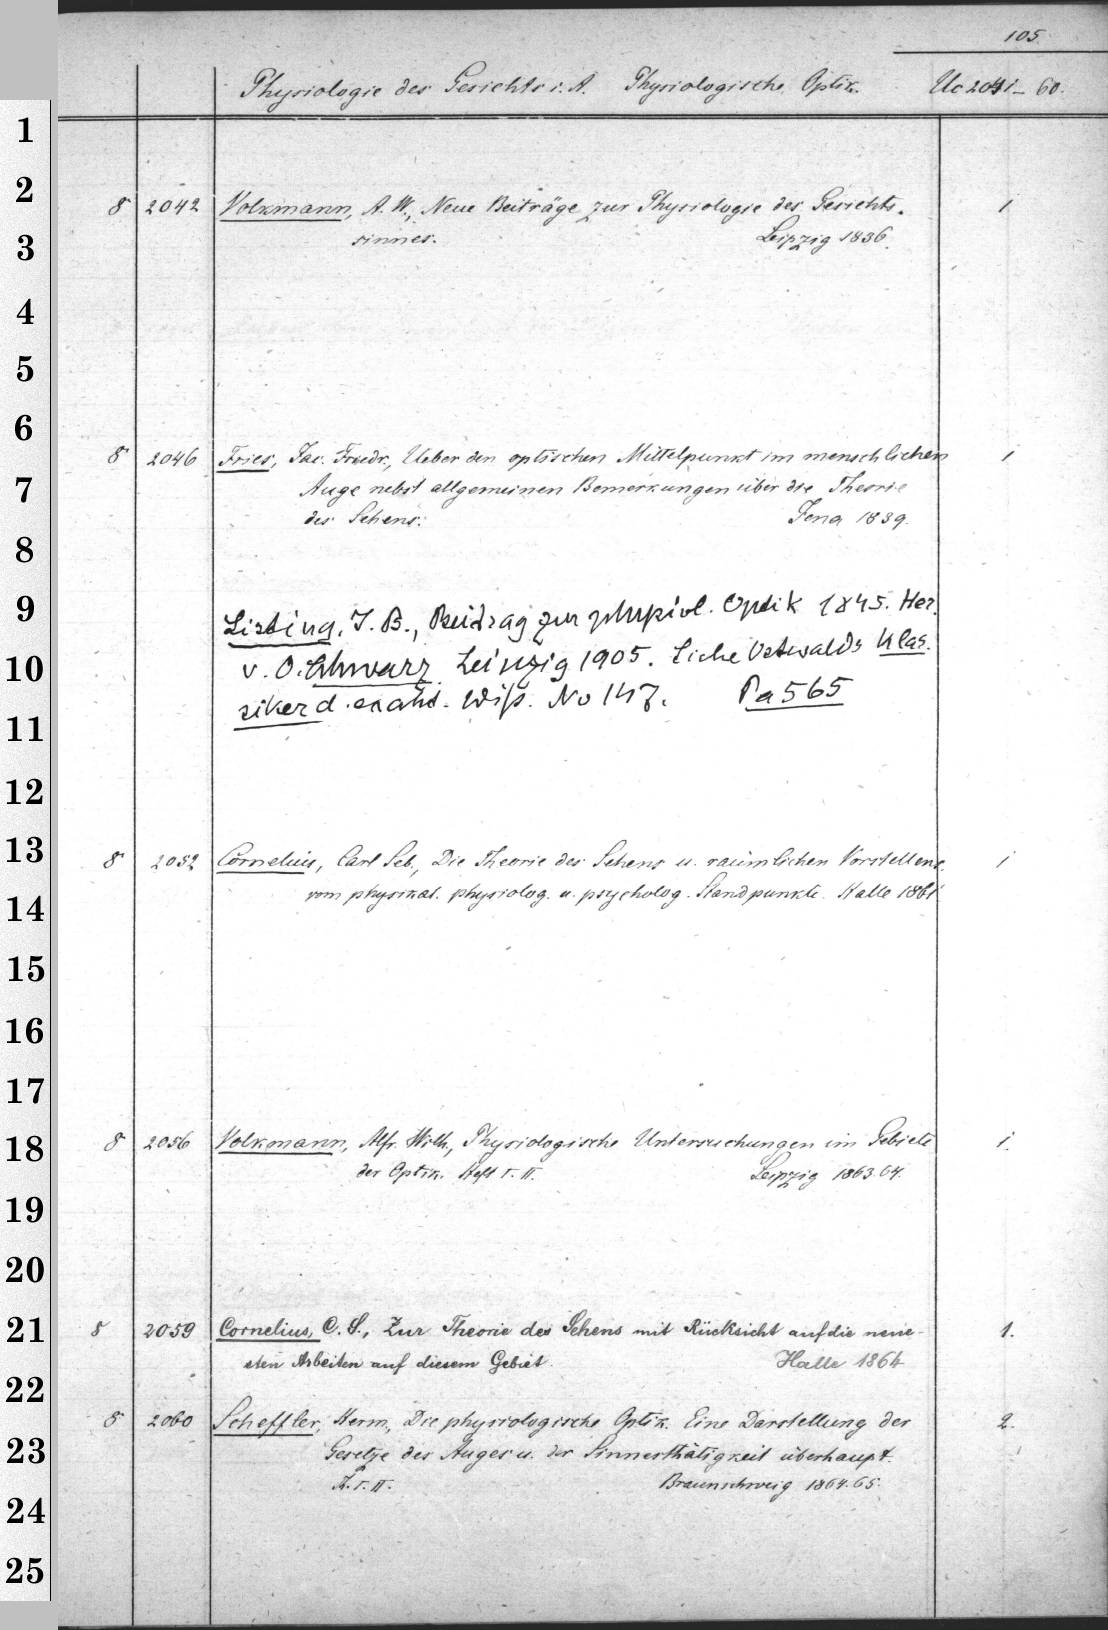 105
Physiologie des Gesichts i. A. Physiologische Optik. Uc 2041–60.
1
2
3
4
5
6
7
8
9
10
11
12
13
14
15
16
17
18
19
20
21
22
23
24
25
8 2042 Volkmann, A. W., Neue Beiträge zur Physiologie des Gesichts- 1
sinnes. Leipzig 1836.
8 2046 Fries, Jac. Friedr., Ueber den optischen Mittelpunkt im menschlichen 1
Auge nebst allgemeinen Bemerkungen über die Theorie
des Sehens. Jena 1839.
Listing, J. B., Beitrag zur physiol. Optik 1845. Her.
v. O. Schwarz Leipzig 1905. Siehe Ostwalds Klas-
siker d. exakt. Wiss. No 147. Pa 565
8 2052 Cornelius, Carl Seb., Die Theorie des Sehens u. räumlichen Vorstellens 1
vom physikal. physiolog. u. psycholog. Standpunkte. Halle 1861
8 2056 Volkmann, Alfr. Wilh., Physiologische Untersuchungen im Gebiete 1.
der Optik. Heft I. II. Leipzig 1863.64.
8 2059 Cornelius, C. S., Zur Theorie des Sehens mit Rücksicht auf die neue- 1.
sten Arbeiten auf diesem Gebiet. Halle 1864
8 2060 Scheffler, Herm., Die physiologische Optik. Eine Darstellung der 2.
Gesetze des Auges u. der Sinnesthätigkeit überhaupt.
I. II. Braunschweig 1864.65.